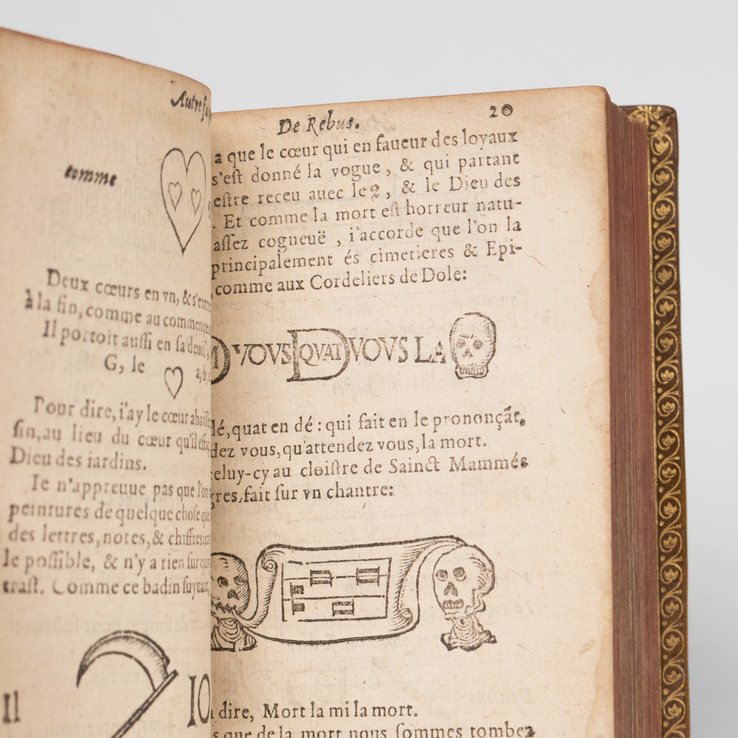 Autre
comme
Deux cœurs en vn, & s'en
à la fin, comme au commence
Il portoit aussi en sa
G, le a, b
Pour dire, i'ay le cœur
fin, au lieu du cœur qu'il
Dieu des iardins.
Ie n'appreuue pas que l'on
peintures de quelque chose que
des lettres, notes, & chiffres
le possible, & n'y a rien sur
trast. Comme ce badin suyuant
Il IO
De Rebus. 20
a que le cœur qui en faueur des loyaux
s'est donné la vogue, & qui partant
estre receu auec le 2, & le Dieu des
. Et comme la mort est horreur natu-
assez cogneuë, i'accorde que l'on la
principalement és cimetieres & Epi-
comme aux Cordeliers de Dole:
D VOVS QVAT D VOVS LA
dé, quat en dé: qui fait en le prononçãt,
dez vous, qu'attendez vous, la mort.
celuy-cy au cloistre de Sainct Mammés
gres, fait sur vn chantre:
dire, Mort la mi la mort.
que de la mort nous sommes tombez